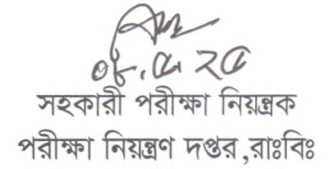 ০৮.৫.২৫
সহকারী পরীক্ষা নিয়ন্ত্রক
পরীক্ষা নিয়ন্ত্রণ দপ্তর,রাঃবিঃ